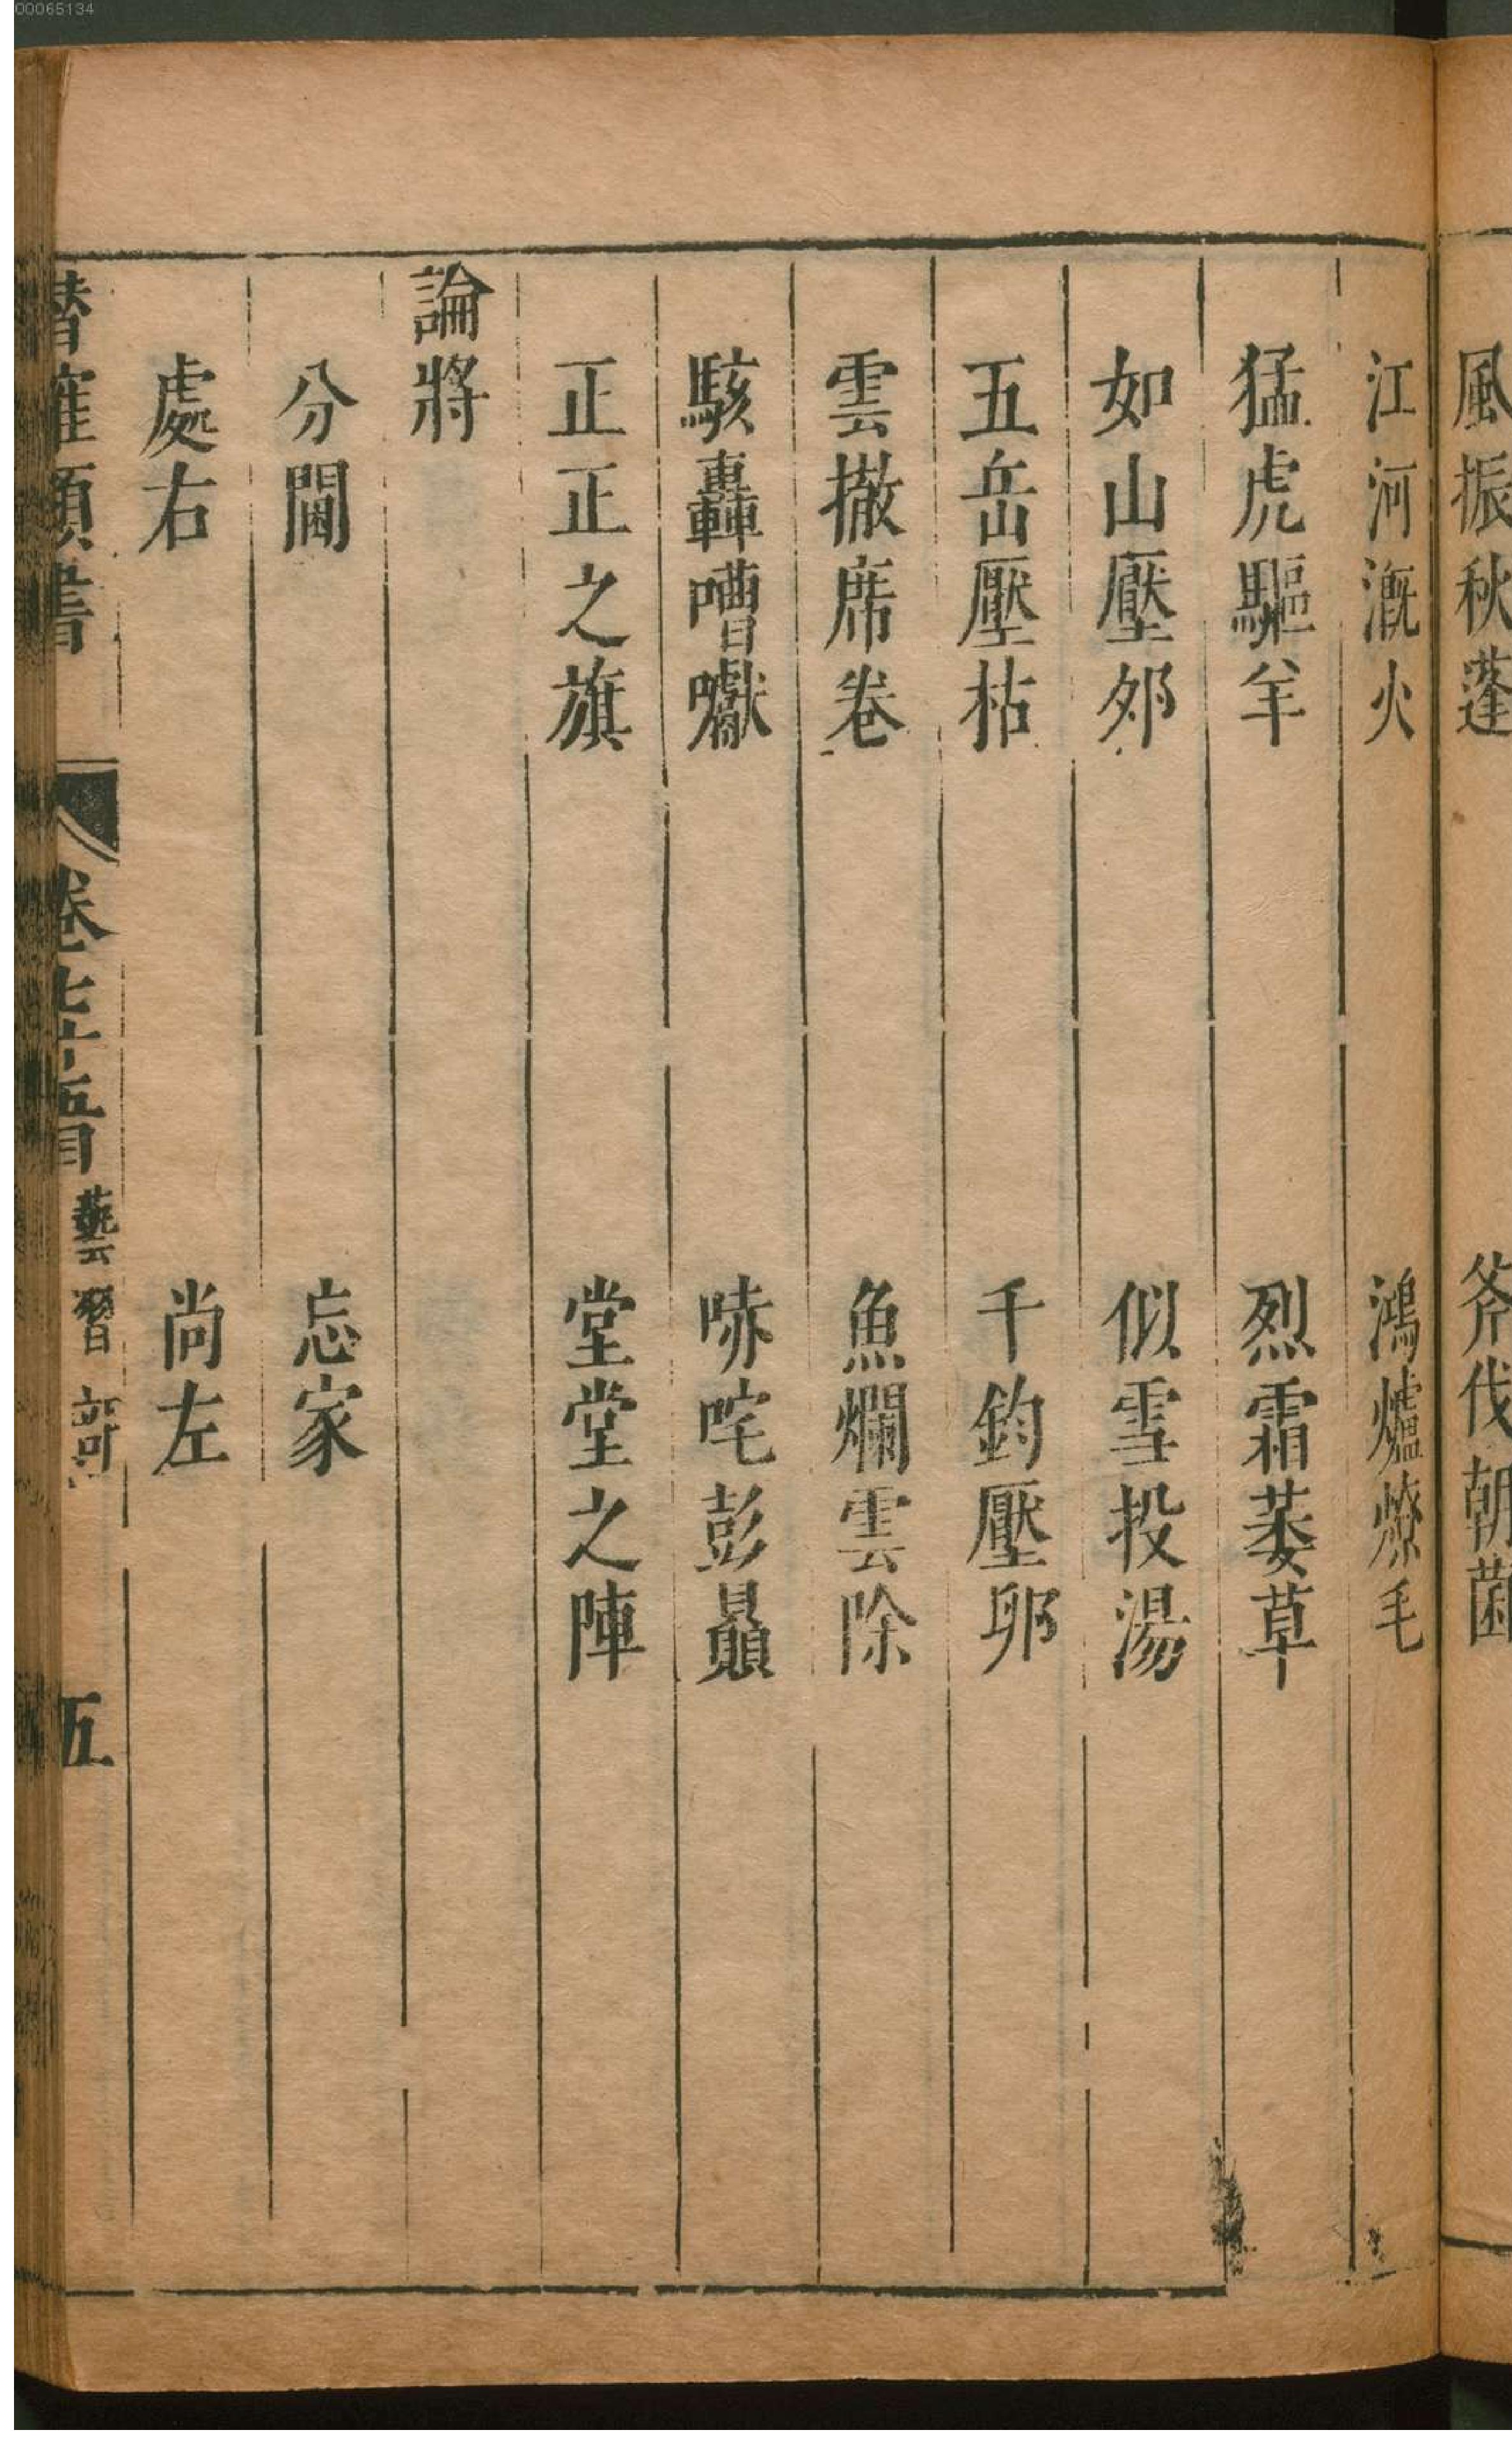 00065134
風振秋蓬　斧伐朝菌
江河漑火　鴻爐燎毛
猛虎驅羊　烈霜萎草
如山壓夘　似雪投湯
五岳壓枯　千鈞壓卵
雲撤席卷　魚爛雲除
駭轟嘈囐　哧咤彭贔
正正之旗　堂堂之陣
論將
分閫　忘家
處右　尚左
類書　卷七十五目　藝習　五